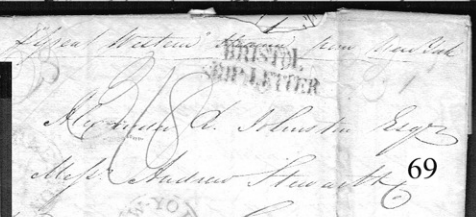 "Great Western" Steamer from New York
BRISTOL
SHIP LETTER
Alexander L. Johnston Esqr
Messr. Andrew Stewart
69
W-YO